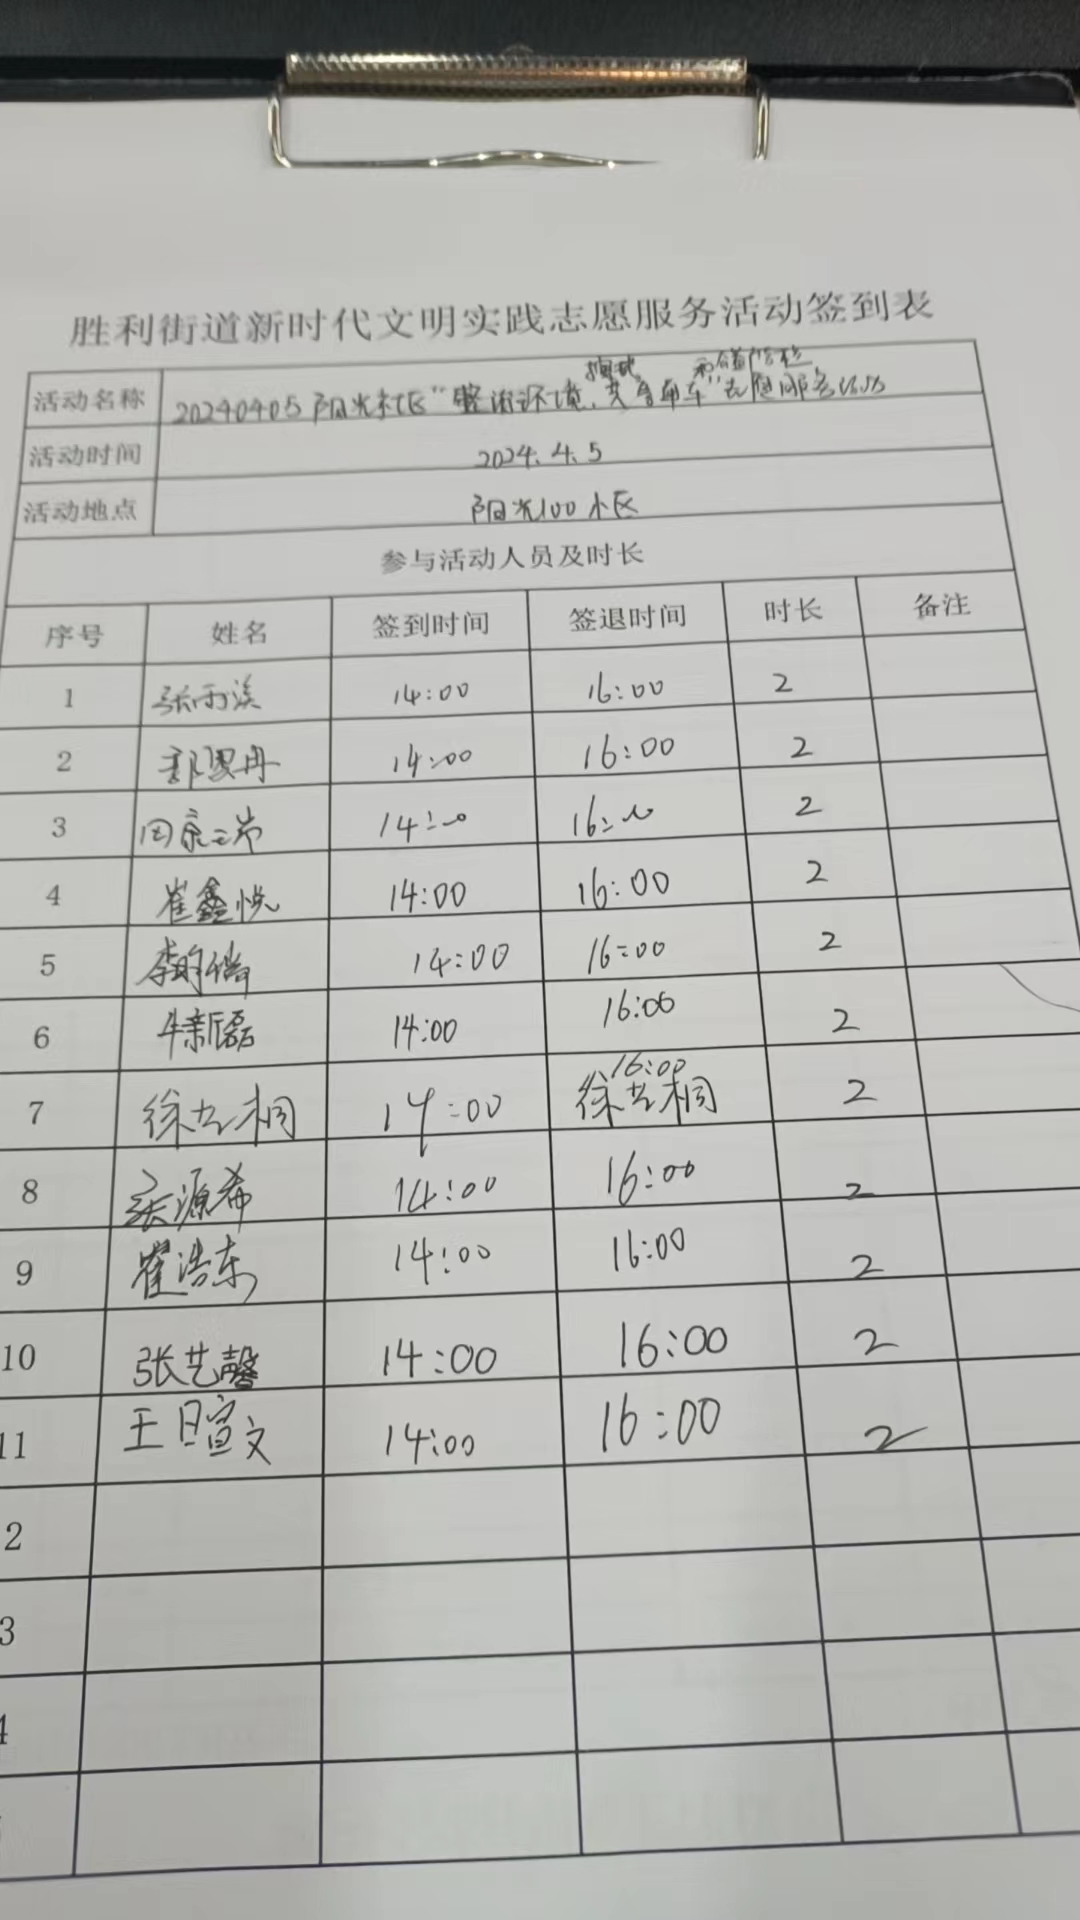 胜利街道新时代文明实践志愿服务活动签到表
活动名称 20240405 阳光社区“整治环境, 共享单车”志愿服务活动
活动时间 2024.4.5
活动地点 阳光100小区
参与活动人员及时长
序号 姓名 签到时间 签退时间 时长 备注
1 张雨溪 14:00 16:00 2
2 14:00 16:00 2
3 14:00 16:00 2
4 崔鑫悦 14:00 16:00 2
5 14:00 16:00 2
6 牛新磊 14:00 16:00 2
16:00
7 徐艺桐 14:00 徐艺桐 2
8 张源希 14:00 16:00 2
9 崔浩东 14:00 16:00 2
10 张艺馨 14:00 16:00 2
11 王日宣文 14:00 16:00 2
2
3
4